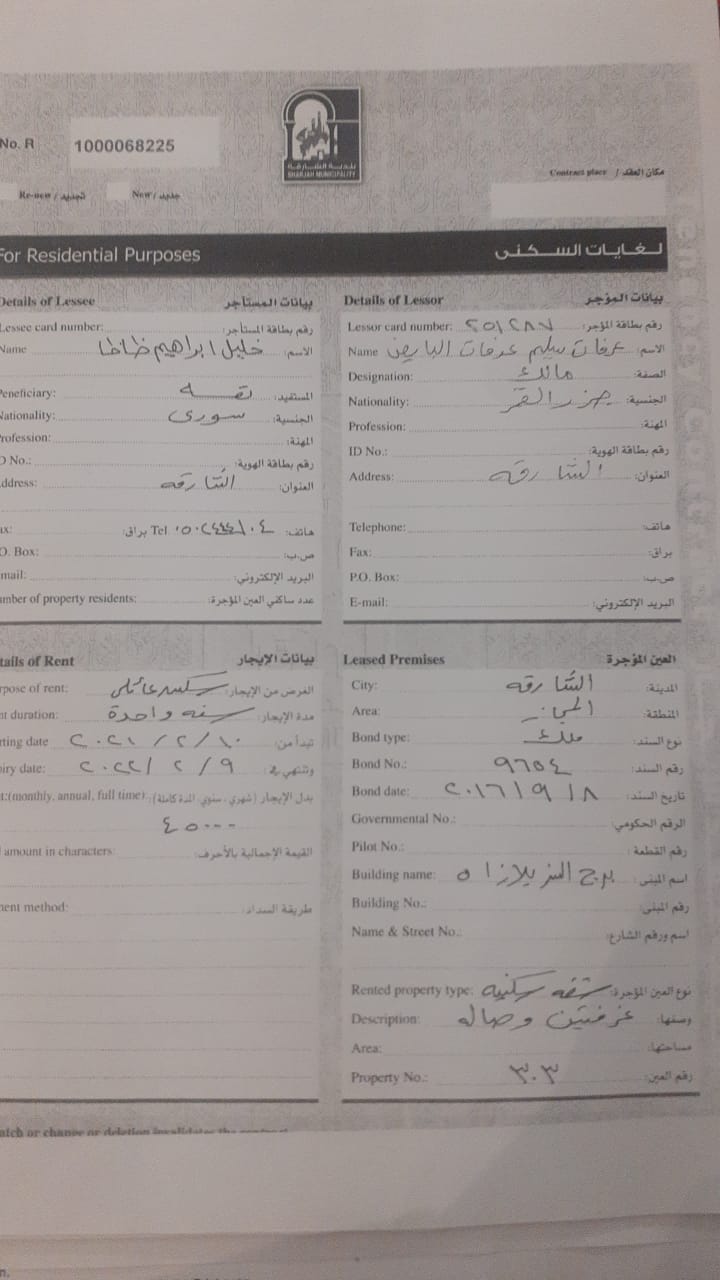 No. R 1000068225
بلدية الشارقة
SHARJAH MUNICIPALITY
Contract place / مكان العقد
Re-new / تجديد New / جديد
For Residential Purposes لغايات السكنى
Details of Lessee بيانات المستأجر
Lessee card number: رقم بطاقة المستأجر:
Name خليل ابراهيم ظاظا الاسم:
Beneficiary: نفسه المستفيد:
Nationality: سوري الجنسية:
Profession: المهنة:
D No.: رقم بطاقة الهوية:
ddress: الشارقه العنوان:
ax: براق: Tel هاتف:
O. Box: ص.ب:
mail: البريد الإلكتروني:
mber of property residents: عدد ساكني العين المؤجرة:
Details of Lessor بيانات المؤجر
Lessor card number: ٢٥١٢٨٧ رقم بطاقة المؤجر:
Name عرفات سالم عرفات الاسم:
Designation: مالك الصفة:
Nationality: جزر القمر الجنسية:
Profession: المهنة:
ID No.: رقم بطاقة الهوية:
Address: الشارقه العنوان:
Telephone: هاتف:
Fax: براق:
P.O. Box: ص.ب:
E-mail: البريد الإلكتروني:
tails of Rent بيانات الإيجار
rpose of rent: سكن عائلي الغرض من الإيجار:
nt duration: سنه واحدة مدة الإيجار:
rting date ٢٠٢١/٢/١٠ تبدأ من:
iry date: ٢٠٢٢/٢/٩ وتنتهي في:
t:(monthly, annual, full time) بدل الإيجار (شهري، سنوي، المدة كاملة):
٤٥٠٠٠
amount in characters: القيمة الإجمالية بالأحرف:
ment method: طريقة السداد:
Leased Premises العين المؤجرة
City: الشارقه المدينة:
Area: المجاز المنطقة:
Bond type: ملك نوع السند:
Bond No.: ٩٦٥٤ رقم السند:
Bond date: ٢٠١٦/٩/٨ تاريخ السند:
Governmental No.: الرقم الحكومي:
Pilot No.: رقم القطعة:
Building name: برج ٥ اسم المبنى:
Building No.: رقم المبنى:
Name & Street No.: اسم ورقم الشارع:
Rented property type: شقه سكنيه نوع العين المؤجرة:
Description: غرفتين وصاله وصفها:
Area: مساحتها:
Property No.: ٣٠٣ رقم العين:
atch or change or deletion invalidates the contract